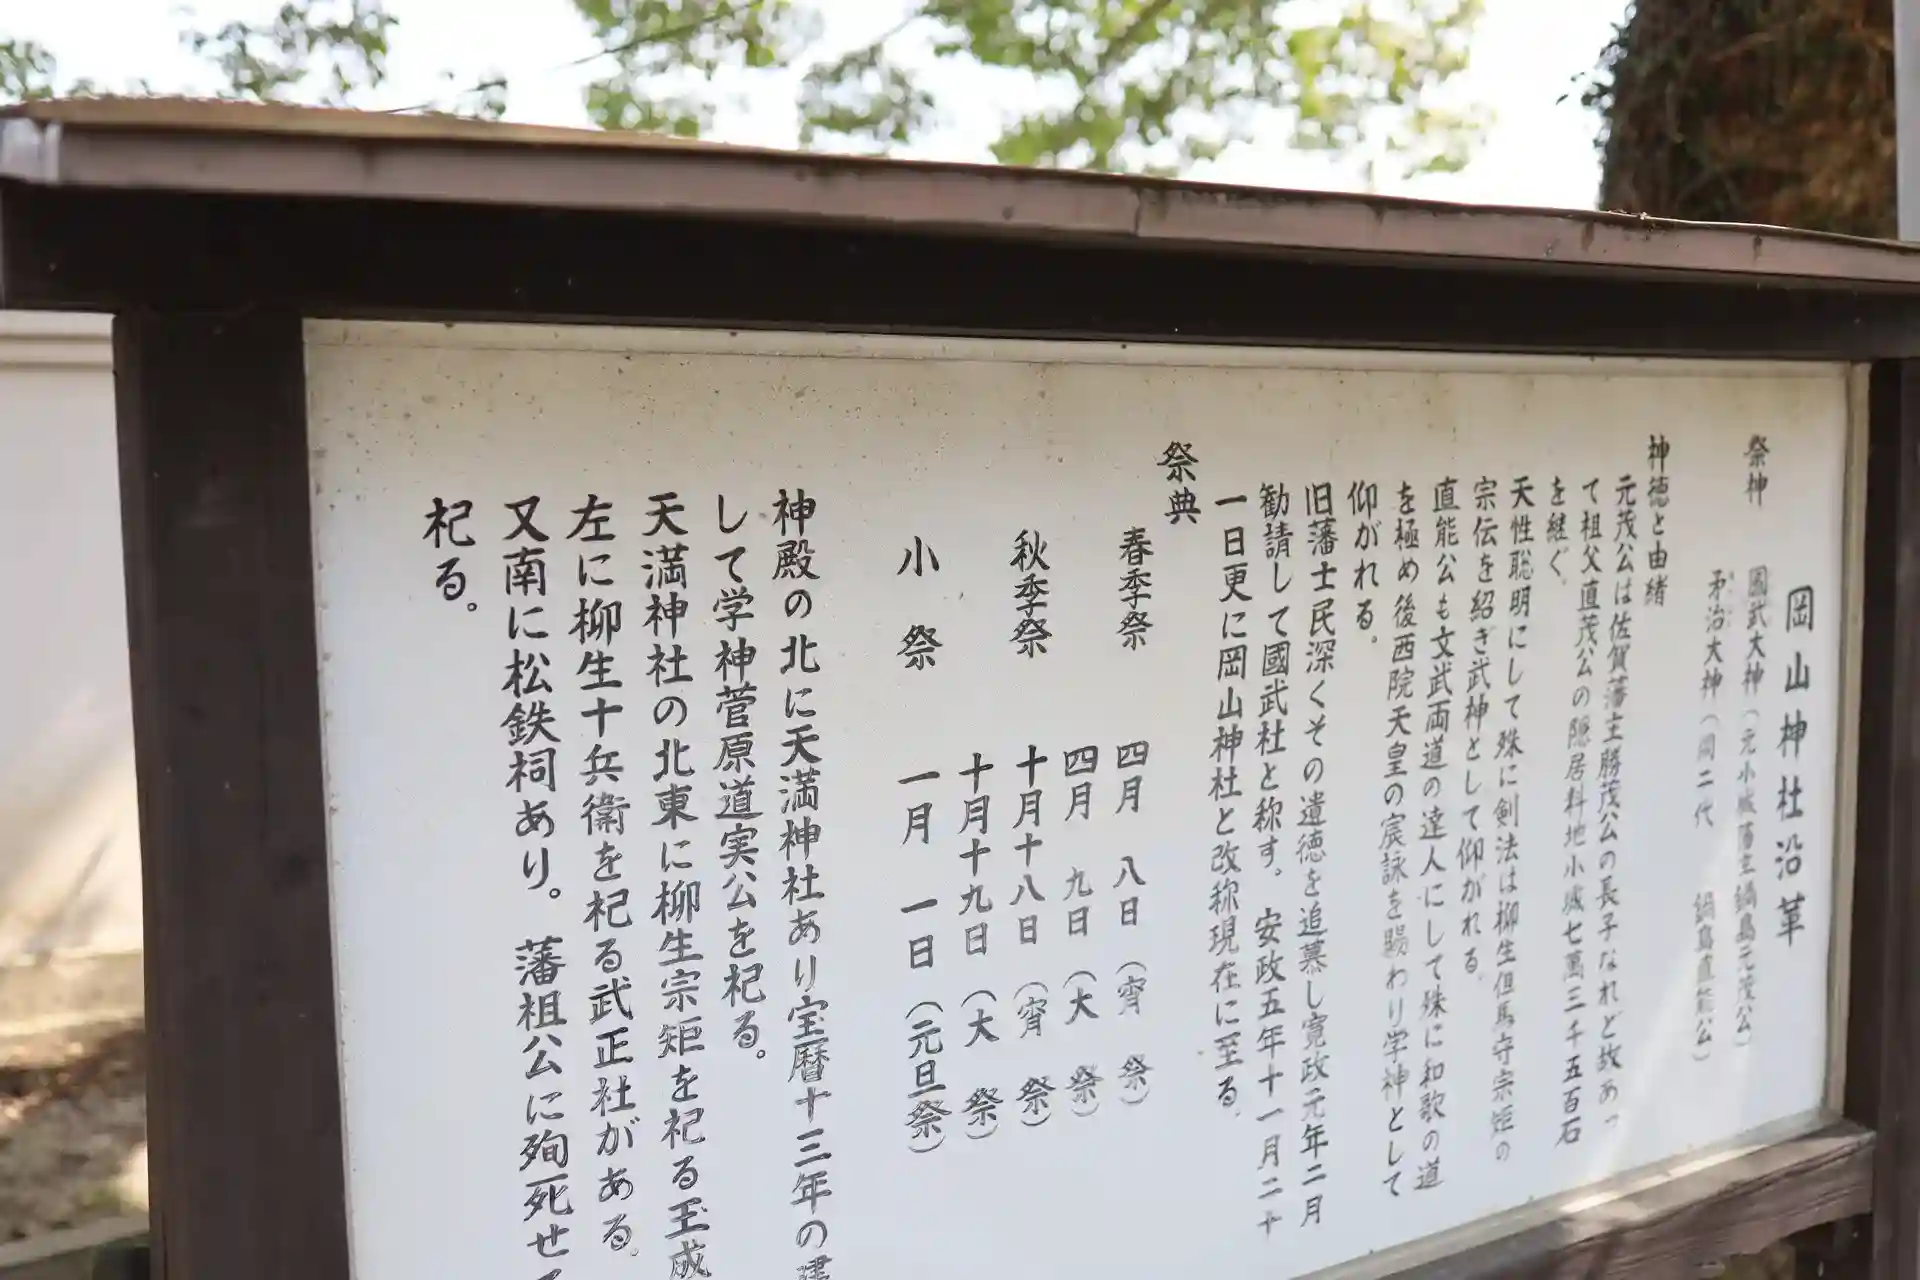 岡山神社沿革
祭神　國武大神（元小城藩主鍋島元茂公）
矛治大神（同二代　鍋島直能公）
神徳と由緒
元茂公は佐賀藩主勝茂公の長子なれど故あっ
て祖父直茂公の隠居料地小城七萬三千五百石
を継ぐ
天性聡明にして殊に剣法は柳生但馬守宗矩の
宗伝を紹ぎ武神として仰がれる
直能公も文武両道の達人にして殊に和歌の道
を極め後西院天皇の宸詠を賜わり学神として
仰がれる。
旧藩士民深くその遺徳を追慕し寛政元年二月
勧請して國武社と称す。安政五年十一月二十
一日更に岡山神社と改称現在に至る
祭典
春季祭　四月　八日（宵　祭）
四月　九日（大　祭）
秋季祭　十月十八日（宵　祭）
十月十九日（大　祭）
小　祭　一月　一日（元旦祭）
神殿の北に天満神社あり宝暦十三年の建
して学神菅原道実公を祀る。
天満神社の北東に柳生宗矩を祀る玉成
左に柳生十兵衛を祀る武正社がある
又南に松鉄祠あり。藩祖公に殉死せ
祀る。